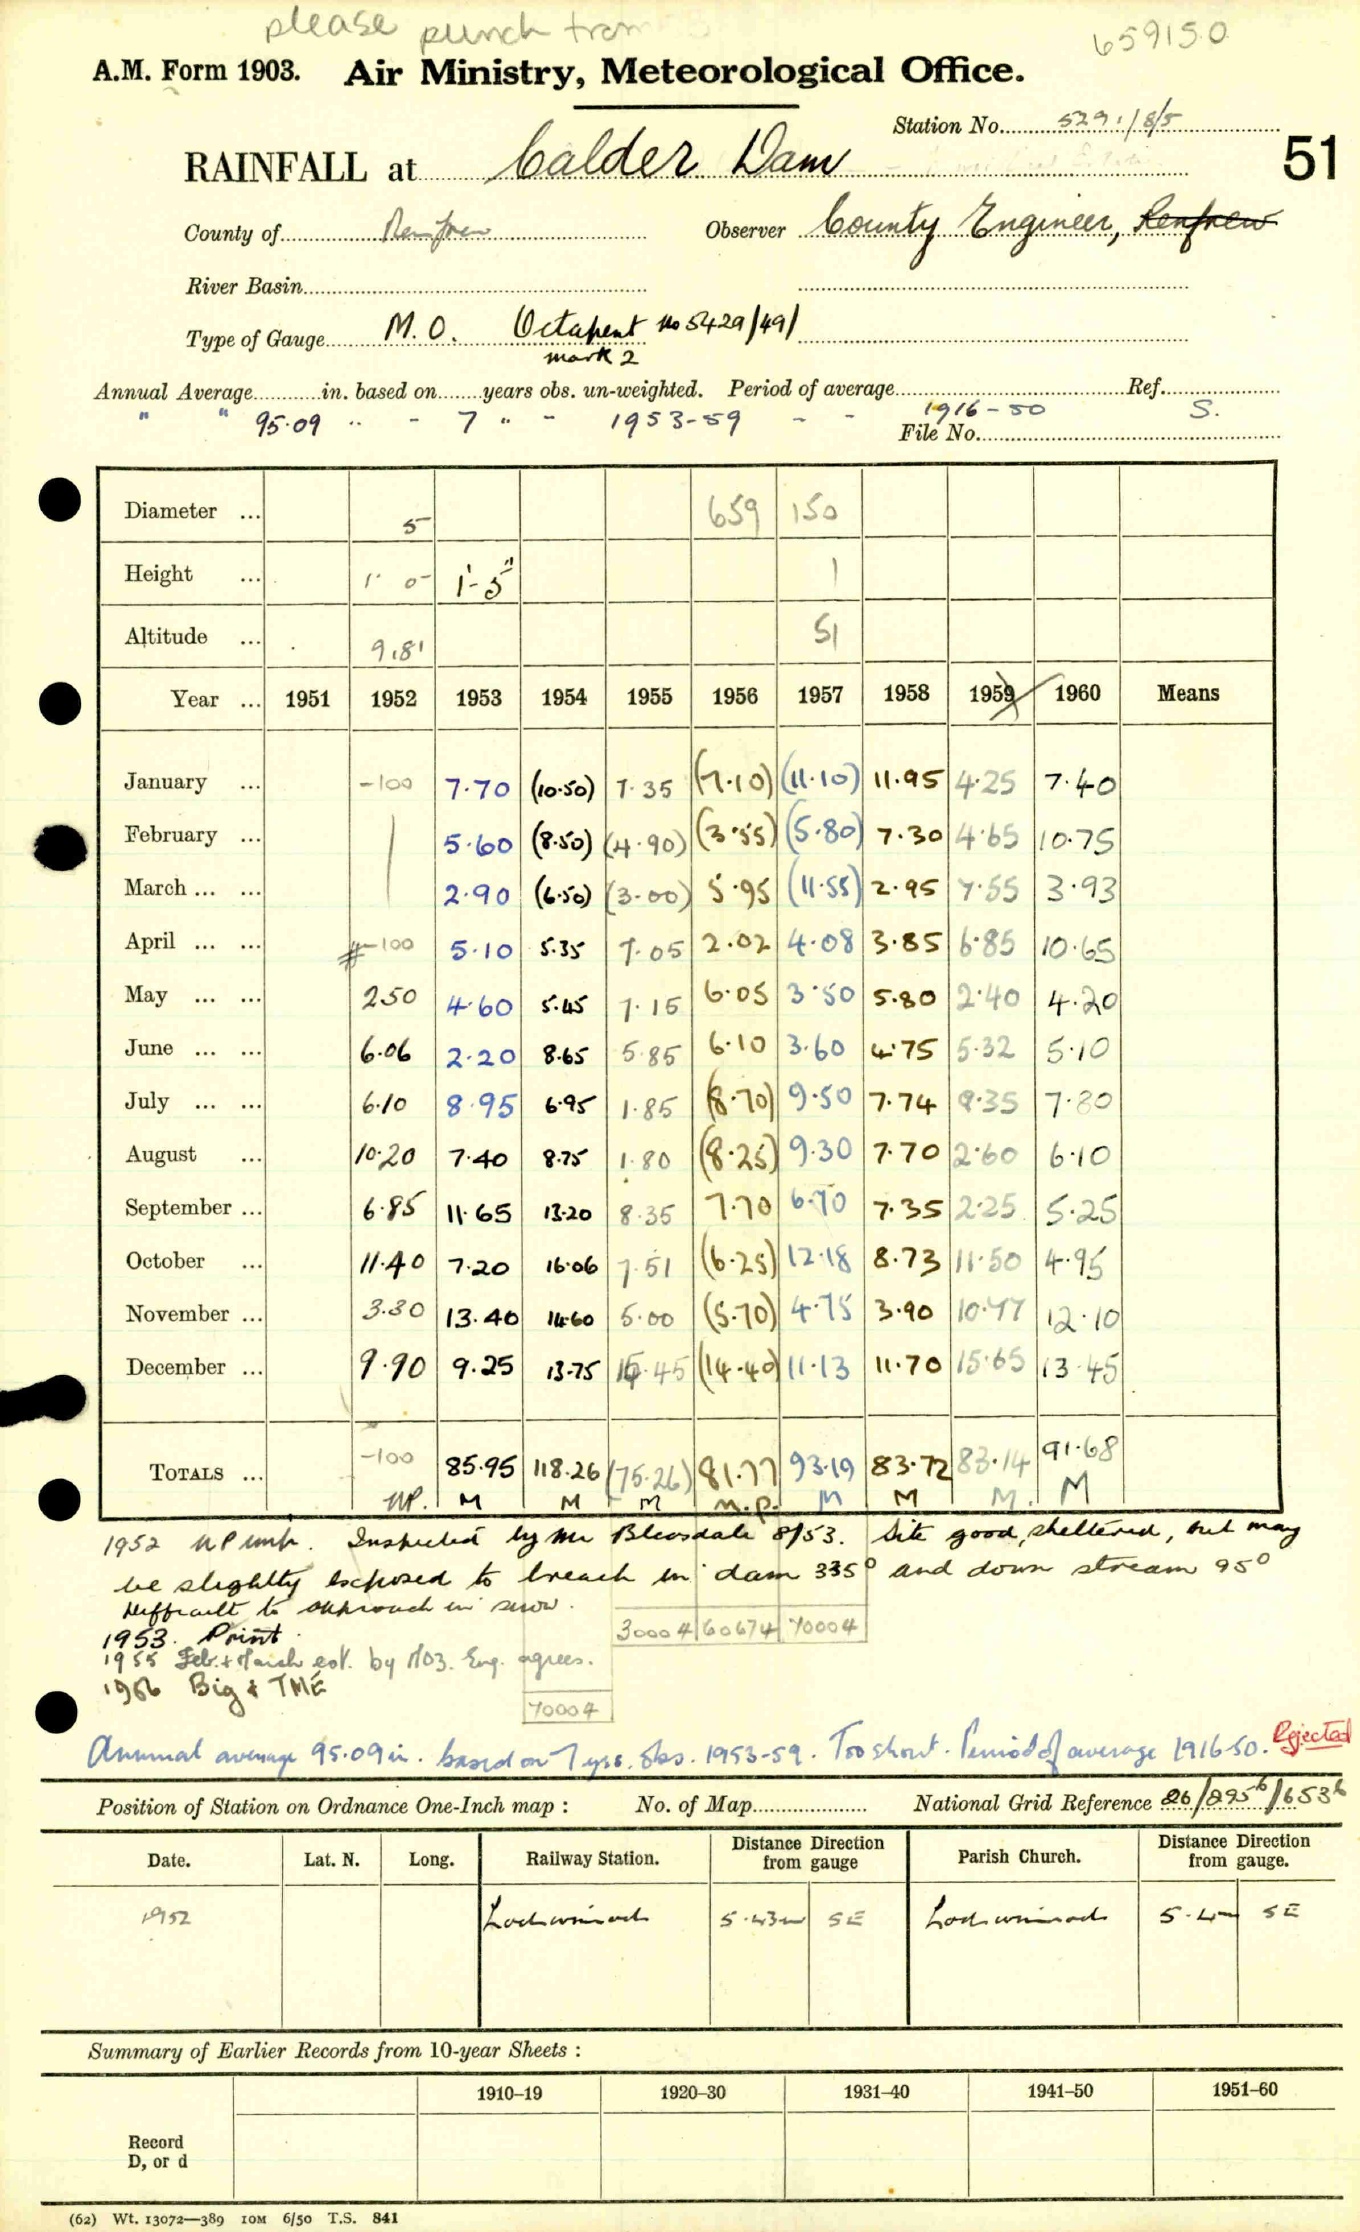 please punch from
659150
A.M. Form 1903. Air Ministry, Meteorological Office.
Station No. 5291/8/5
RAINFALL at Calder Dam
51
County of Renfrew Observer County Engineer, Renfrew
River Basin
Type of Gauge M.O. Octapent No 5429/49/
mark 2
Annual Average in. based on years obs. un-weighted. Period of average Ref.
" " 95.09 " - 7 " - 1953-59 - - 1916-50 S.
File No.
Diameter ... 5 659 150
Height ... 1' 0" 1'-5" 1
Altitude ... 981 51
Year ... 1951 1952 1953 1954 1955 1956 1957 1958 1959 1960 Means
January ... -100 7.70 (10.50) 7.35 (7.10) (11.10) 11.95 4.25 7.40
February ... 5.60 (8.50) (4.90) (3.55) (5.80) 7.30 4.65 10.75
March ... ... 2.90 (6.50) (3.00) 5.95 (11.55) 2.95 7.55 3.93
April ... ... -100 5.10 5.35 7.05 2.02 4.08 3.85 6.85 10.65
May ... ... 2.50 4.60 5.45 7.15 6.05 3.50 5.80 2.40 4.20
June ... ... 6.06 2.20 8.65 5.85 6.10 3.60 4.75 5.32 5.10
July ... ... 6.10 8.95 6.95 1.85 (8.70) 9.50 7.74 9.35 7.80
August ... 10.20 7.40 8.75 1.80 (8.25) 9.30 7.70 2.60 6.10
September ... 6.85 11.65 13.20 8.35 7.70 6.70 7.35 2.25 5.25
October ... 11.40 7.20 16.06 7.51 (6.25) 12.18 8.73 11.50 4.95
November ... 3.30 13.40 14.60 5.00 (5.70) 4.75 3.90 10.77 12.10
December ... 9.90 9.25 13.75 15.45 (14.40) 11.13 11.70 15.65 13.45
TOTALS ... -100 85.95 118.26 (75.26) 81.77 93.19 83.72 83.14 91.68
NP. M M M n.p. M M M. M
1952 NP unp. Inspected by Mr Bleasdale 8/53. Site good, sheltered, but may
be slightly exposed to breach in dam 335° and down stream 95°
Difficult to approach in snow.
30004 60674 70004
1953. Print.
1955 Feb. + March est. by MO3. Eng. agrees.
1956 Big & TME
70004
Annual average 95.09 in. based on 7 yrs. obs. 1953-59. Too short. Period of average 1916-50. Rejected
Position of Station on Ordnance One-Inch map : No. of Map National Grid Reference 26/295⁶/653⁶
Date. Lat. N. Long. Railway Station. Distance from gauge Direction Parish Church. Distance from gauge. Direction
1952 Lochwinnoch 5.43m SE Lochwinnoch 5.4m SE
Summary of Earlier Records from 10-year Sheets :
1910–19 1920–30 1931–40 1941–50 1951–60
Record
D, or d
(62) Wt. 13072—389 10M 6/50 T.S. 841